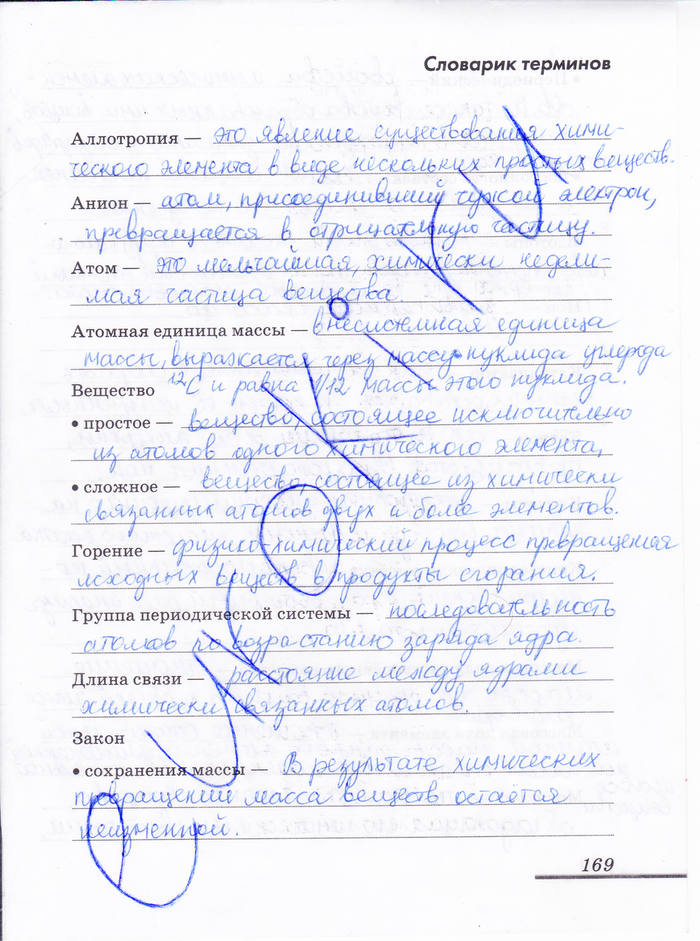 Словарик терминов
Аллотропия — это явление существования хими-
ческого элемента в виде нескольких простых веществ.
Анион — атом, присоединивший чужой электрон,
превращается в отрицательную частицу.
Атом — это мельчайшая, химически недели-
мая частица вещества
Атомная единица массы — внесистемная единица
массы, выражается через массу нуклида углерода
Вещество ¹²C и равна 1/12 массы этого нуклида.
• простое — вещество, состоящее исключительно
из атомов одного химического элемента,
• сложное — вещество, состоящее из химически
связанных атомов двух и более элементов.
Горение — физико-химический процесс превращения
исходных веществ в продукты сгорания.
Группа периодической системы — последовательность
атомов по возрастанию заряда ядра.
Длина связи — расстояние между ядрами
химически связанных атомов.
Закон
• сохранения массы — В результате химических
превращений масса веществ остаётся
неизменной.
169